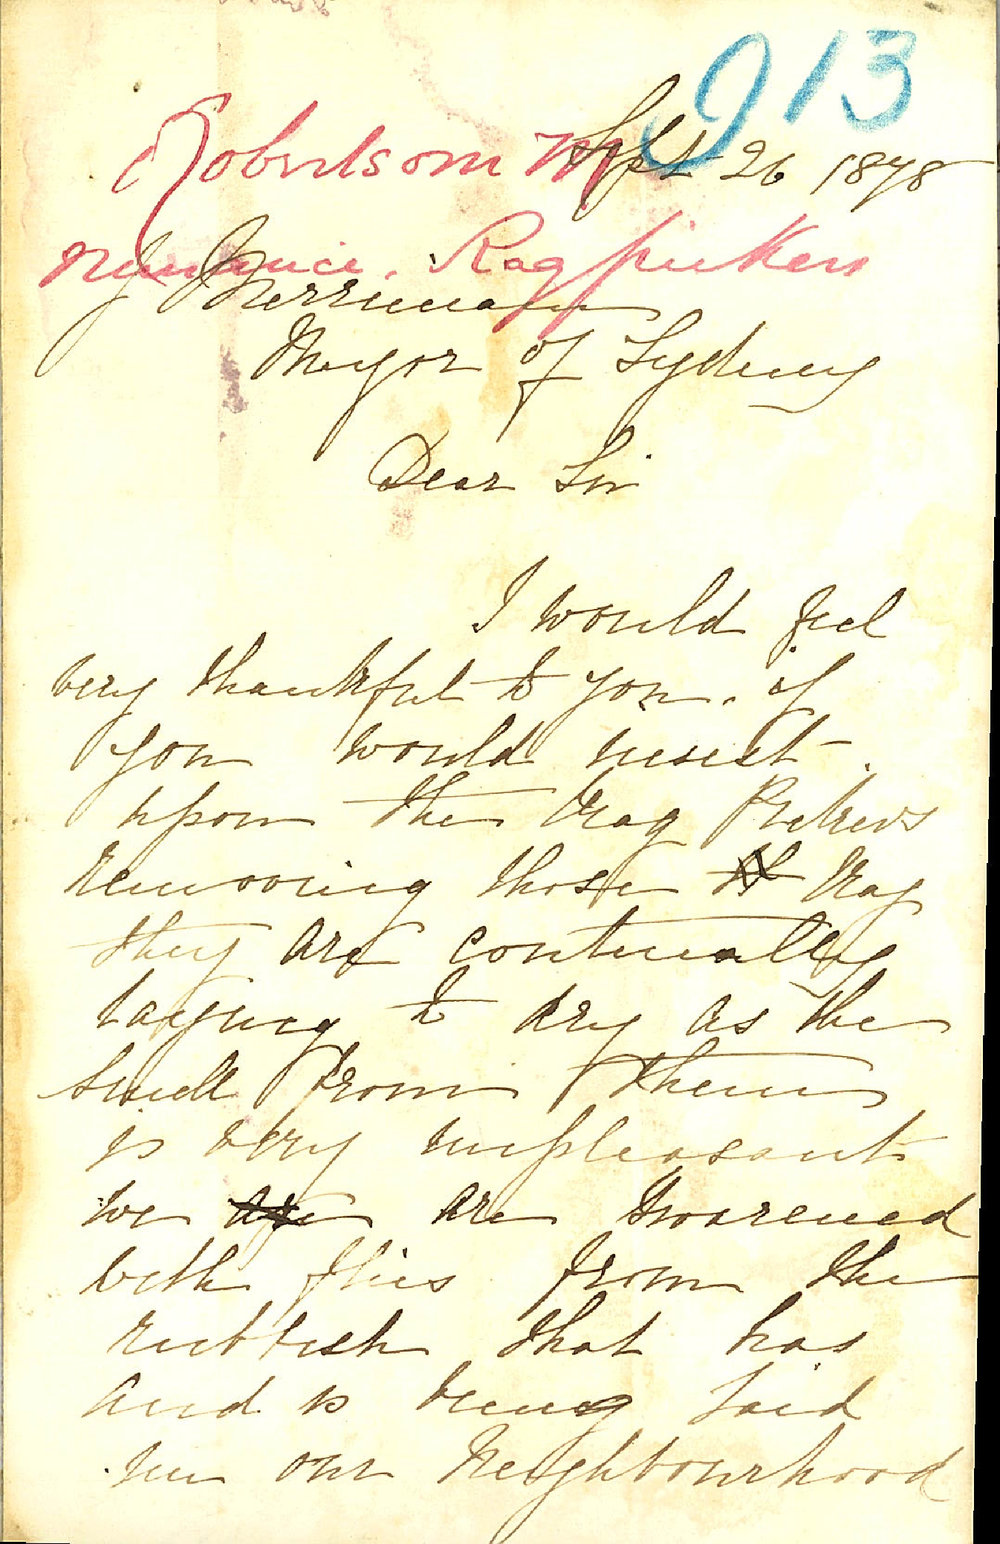 913
Robertson M
Sept 26 1878
nuisance. Rag pickers
J Merriman
Mayor of Sydney
Dear Sir
I would feel
very thankful to you. if
you would insist
upon the Rag Pickers
removing those Rag
they are continually
laying to dry as the
smell from them
is very unpleasant
we are swarened
with flies from the
rubbish that has
and is being laid
in our Neighbourhood